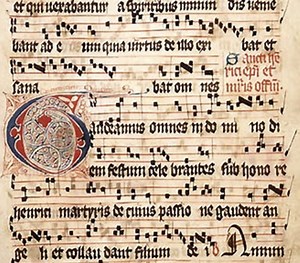 et qui vexabantur a spiritibus immundis veme
bant ad e um quia virtus de illo exi bat et
sana bat om nes
Sancti he
rici epi et
mris offm
Gaudeamus omnes in do mi no di
em festum cele brantes sub hono re
henrici martyris de cuius passio ne gaudent an
ge li et collau dant filium de i